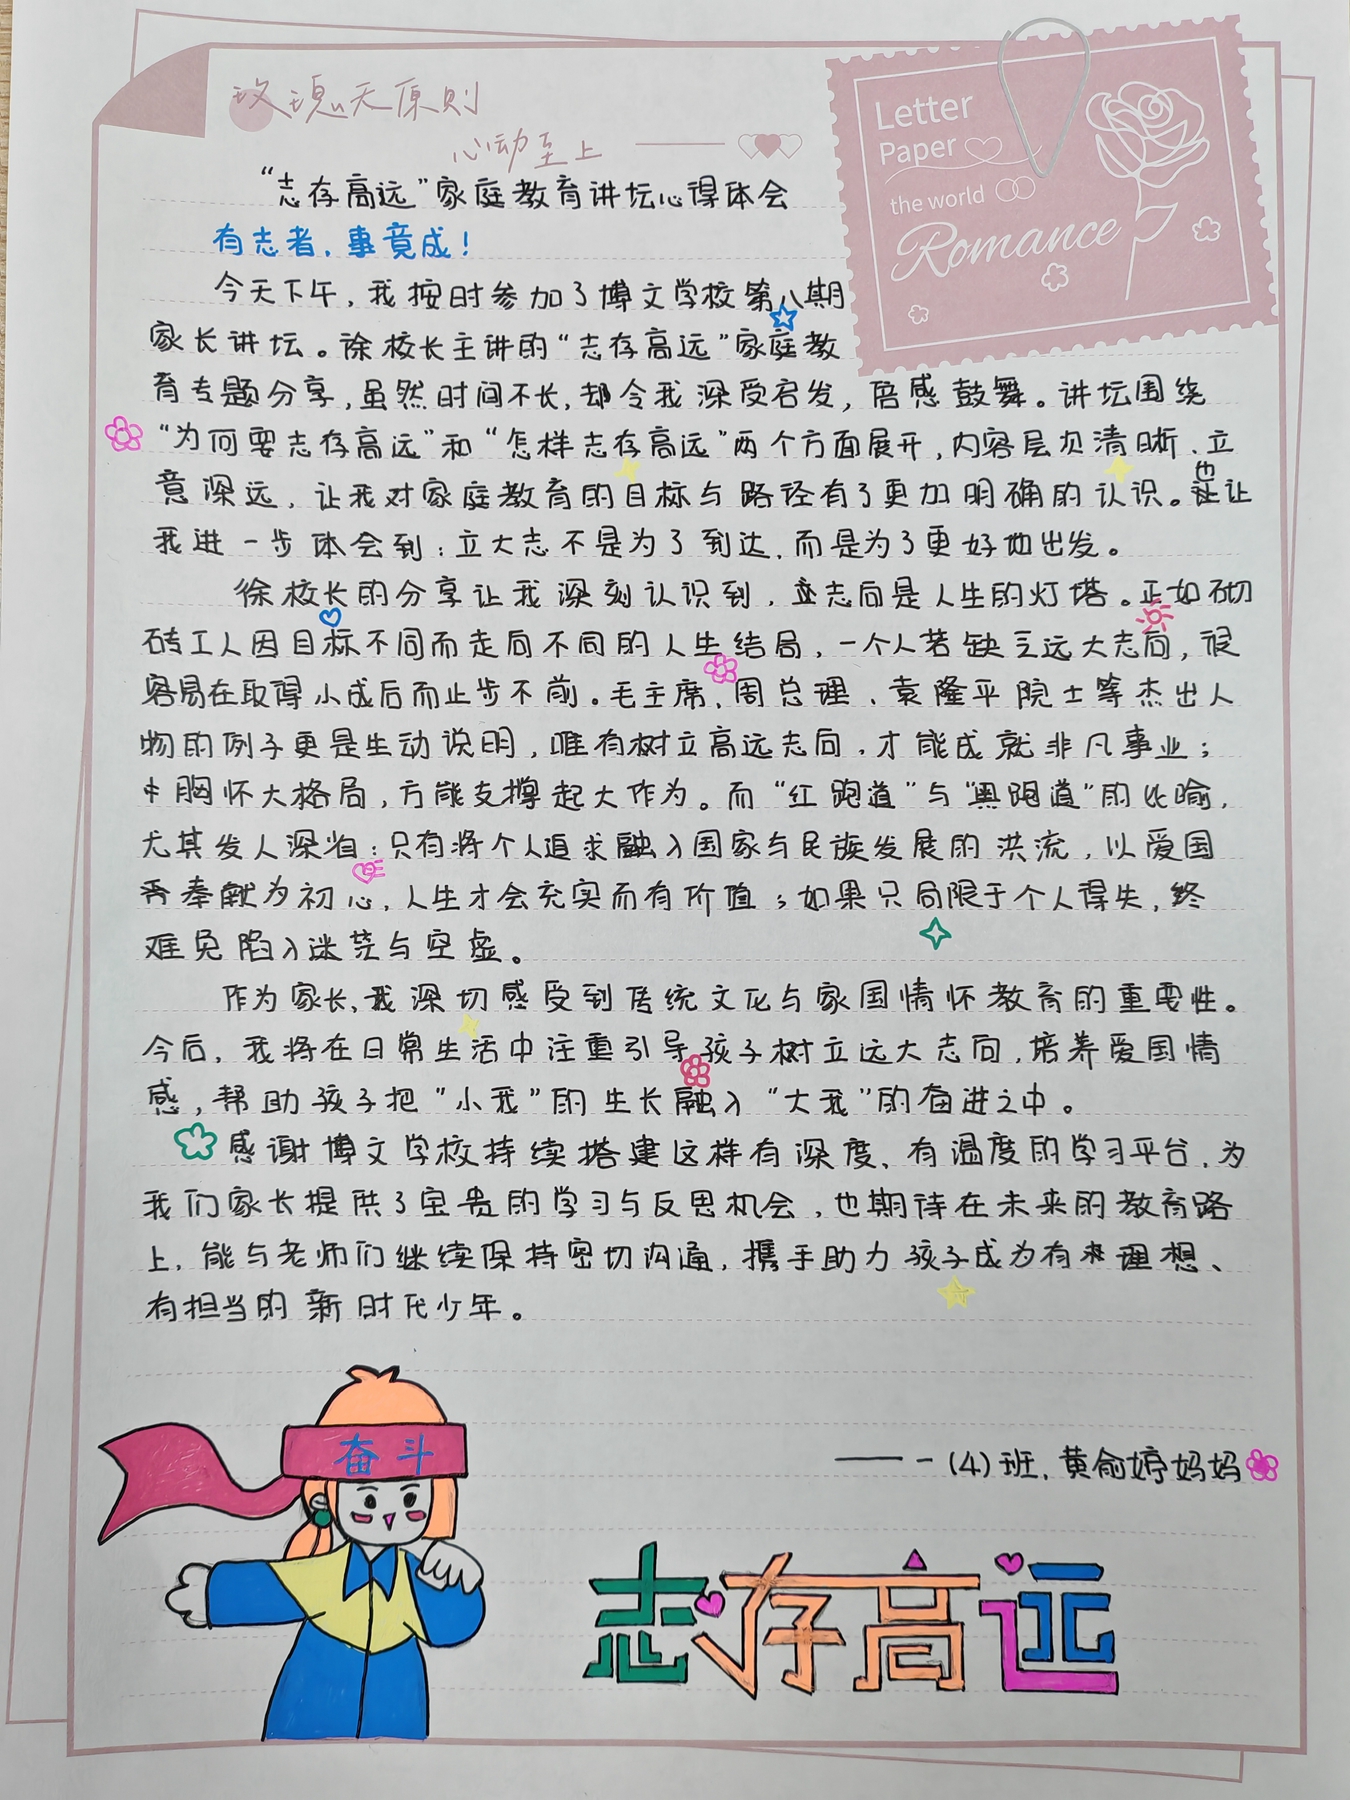 玫瑰无原则
心动至上
Letter
Paper
the world
Romance
“志存高远”家庭教育讲坛心得体会
有志者，事竟成！
今天下午，我按时参加了博文学校第八期
家长讲坛。徐校长主讲的“志存高远”家庭教
育专题分享，虽然时间不长，却令我深受启发，倍感鼓舞。讲坛围绕
“为何要志存高远”和“怎样志存高远”两个方面展开，内容层次清晰、立
意深远，让我对家庭教育的目标与路径有了更加明确的认识。也让
我进一步体会到：立大志不是为了到达，而是为了更好地出发。
徐校长的分享让我深刻认识到，立志向是人生的灯塔。正如砌
砖工人因目标不同而走向不同的人生结局，一个人若缺乏远大志向，很
容易在取得小成后而止步不前。毛主席、周总理、袁隆平院士等杰出人
物的例子更是生动说明，唯有树立高远志向，才能成就非凡事业；
胸怀大格局，方能支撑起大作为。而“红跑道”与“黑跑道”的比喻，
尤其发人深省：只有将个人追求融入国家与民族发展的洪流，以爱国
奉献为初心，人生才会充实而有价值；如果只局限于个人得失，终
难免陷入迷茫与空虚。
作为家长，我深切感受到传统文化与家国情怀教育的重要性。
今后，我将在日常生活中注重引导孩子树立远大志向，培养爱国情
感，帮助孩子把“小我”的生长融入“大我”的奋进之中。
感谢博文学校持续搭建这样有深度、有温度的学习平台，为
我们家长提供了宝贵的学习与反思机会，也期待在未来的教育路
上，能与老师们继续保持密切沟通，携手助力孩子成为有理想、
有担当的新时代少年。
——一(4)班，黄俞婷妈妈
奋斗
志存高远